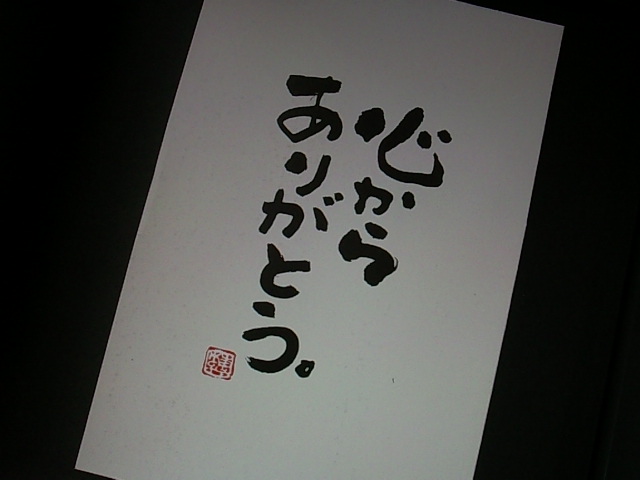 心から
ありがとう。